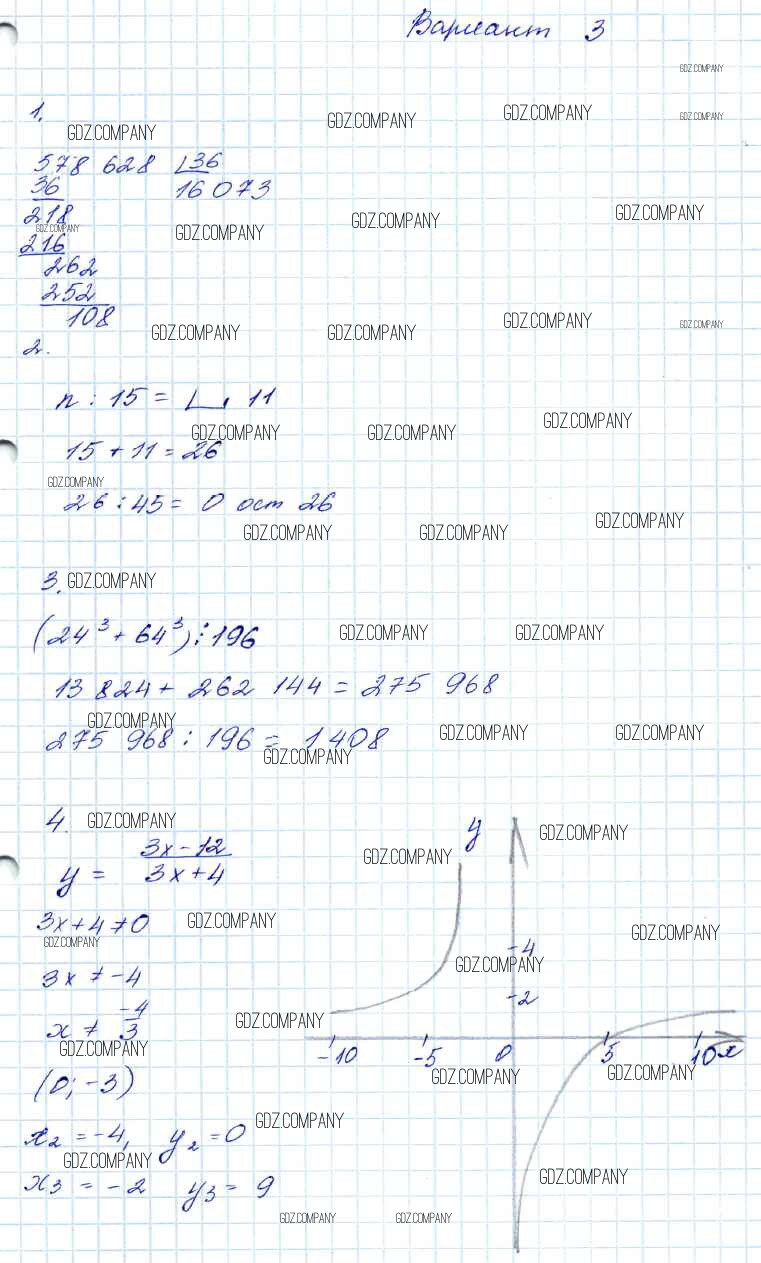 Вариант 3
GDZ.COMPANY
1.
GDZ.COMPANY GDZ.COMPANY GDZ.COMPANY GDZ.COMPANY
578 628 36
36 16 073
218 GDZ.COMPANY
GDZ.COMPANY GDZ.COMPANY GDZ.COMPANY
216
262
252
108
GDZ.COMPANY GDZ.COMPANY GDZ.COMPANY GDZ.COMPANY
2.
n : 15 = , 11
GDZ.COMPANY GDZ.COMPANY GDZ.COMPANY
15 + 11 = 26
GDZ.COMPANY
26 : 45 = 0 ост 26
GDZ.COMPANY GDZ.COMPANY GDZ.COMPANY
3. GDZ.COMPANY
(24³ + 64³) ⋮ 196
GDZ.COMPANY GDZ.COMPANY
13 824 + 262 144 = 275 968
GDZ.COMPANY GDZ.COMPANY GDZ.COMPANY
275 968 : 196 = 1408
GDZ.COMPANY
4. GDZ.COMPANY
y GDZ.COMPANY
3x - 12
y = 3x + 4
GDZ.COMPANY
3x + 4 ≠ 0 GDZ.COMPANY
GDZ.COMPANY GDZ.COMPANY
-4
GDZ.COMPANY
3x ≠ -4
-2
-4
x ≠ 3
GDZ.COMPANY
GDZ.COMPANY
-10 -5 0 5 10 x
GDZ.COMPANY GDZ.COMPANY
(0; -3)
GDZ.COMPANY
x₂ = -4, y₂ = 0
GDZ.COMPANY GDZ.COMPANY
x₃ = -2 y₃ = 9
GDZ.COMPANY GDZ.COMPANY